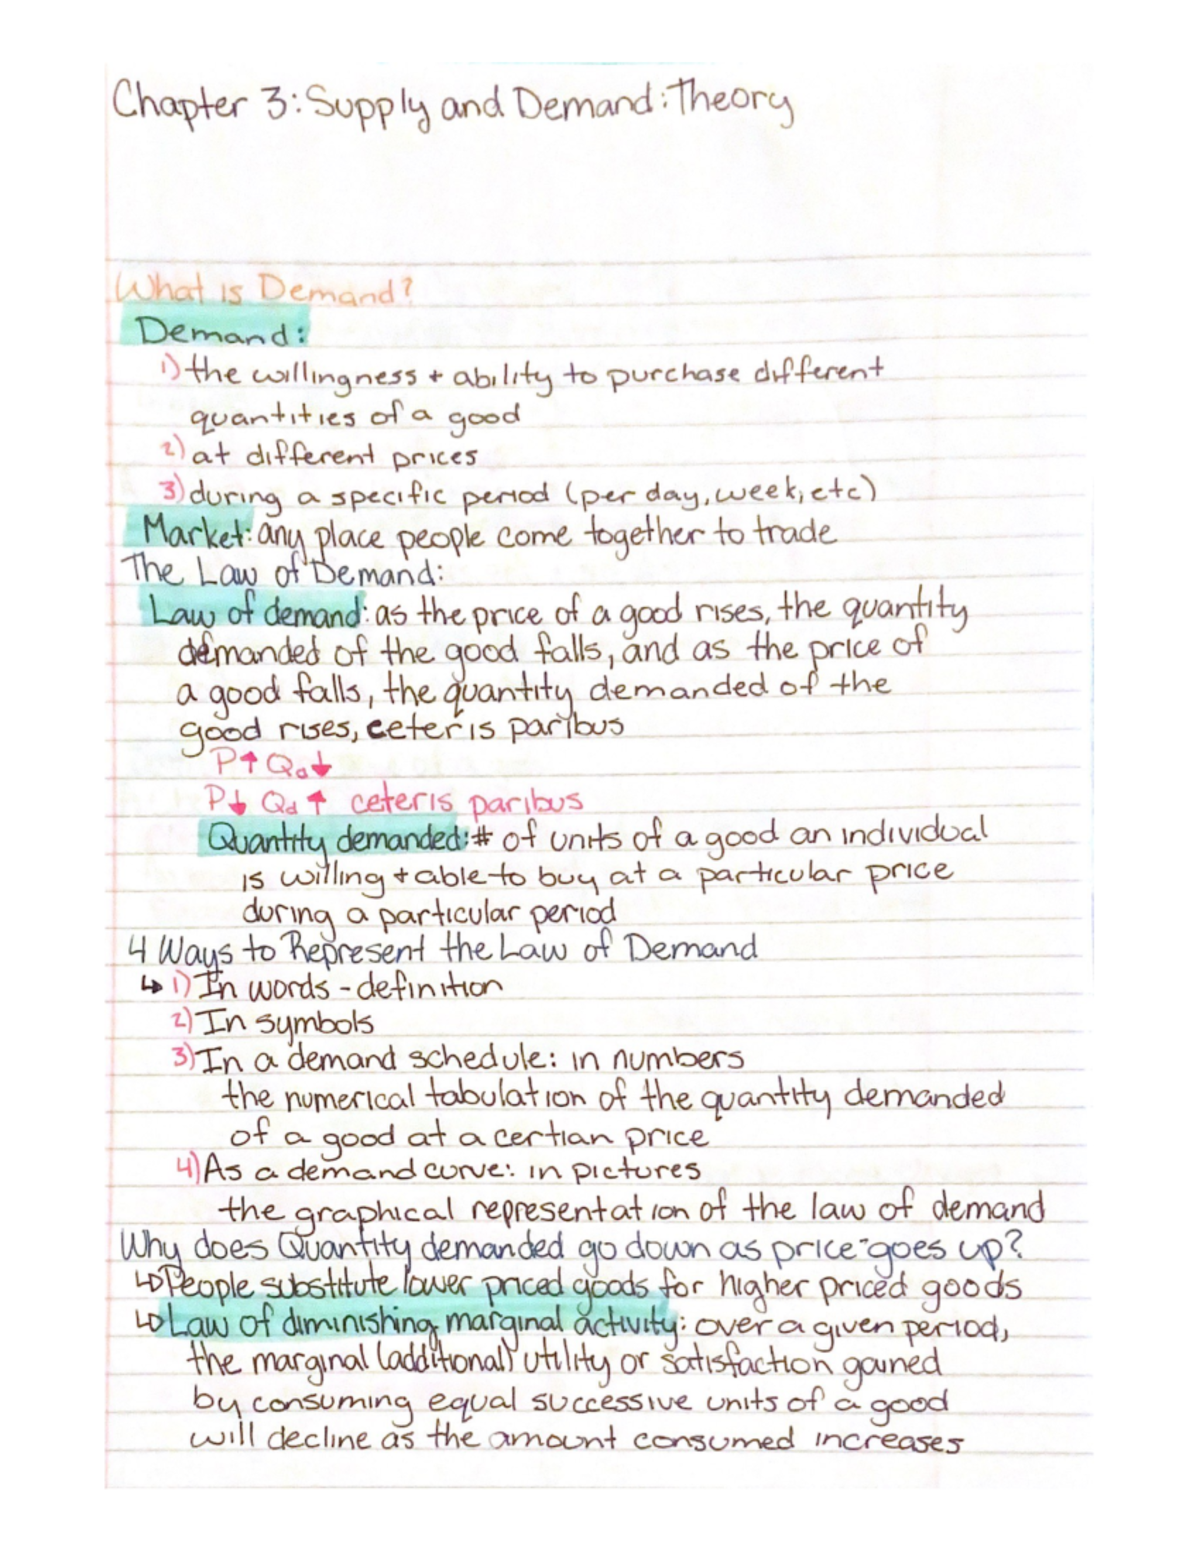 Chapter 3: Supply and Demand: Theory
What is Demand?
Demand:
1) the willingness + ability to purchase different
quantities of a good
2) at different prices
3) during a specific period (per day, week, etc)
Market: any place people come together to trade
The Law of Demand:
Law of demand: as the price of a good rises, the quantity
demanded of the good falls, and as the price of
a good falls, the quantity demanded of the
good rises, ceteris paribus
P↑ Qd↓
P↓ Qd↑ ceteris paribus
Quantity demanded: # of units of a good an individual
is willing + able to buy at a particular price
during a particular period
4 Ways to Represent the Law of Demand
↳ 1) In words - definition
2) In symbols
3) In a demand schedule: in numbers
the numerical tabulation of the quantity demanded
of a good at a certian price
4) As a demand curve: in pictures
the graphical representation of the law of demand
Why does Quantity demanded go down as price goes up?
↳ People substitute lower priced goods for higher priced goods
↳ Law of diminishing marginal activity: over a given period,
the marginal (additional) utility or satisfaction gained
by consuming equal successive units of a good
will decline as the amount consumed increases